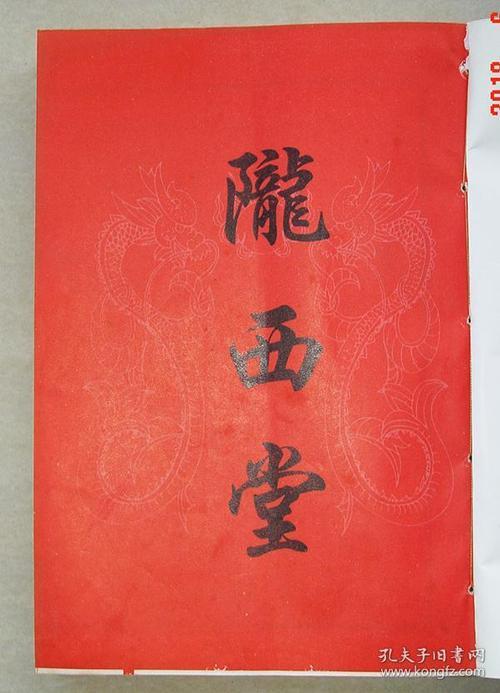 隴西堂
孔夫子旧书网
www.kongfz.com